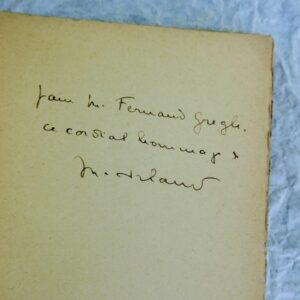 pour M. Fernand Gregh.
ce cordial hommage
M. Arland